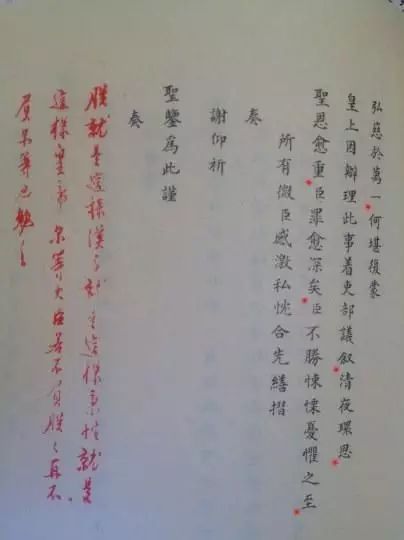 弘慈於萬一何堪復蒙
皇上因辦理此事着吏部議敘清夜環思
聖恩愈重臣罪愈深矣臣不勝悚慄憂懼之至
所有微臣感激私忱合先繕摺
奏
謝仰祈
聖鑒為此謹
奏
朕就是這樣漢子就是這樣秉性就是
這樣皇帝尔等大臣若不負朕朕再不
負尔等也勉之